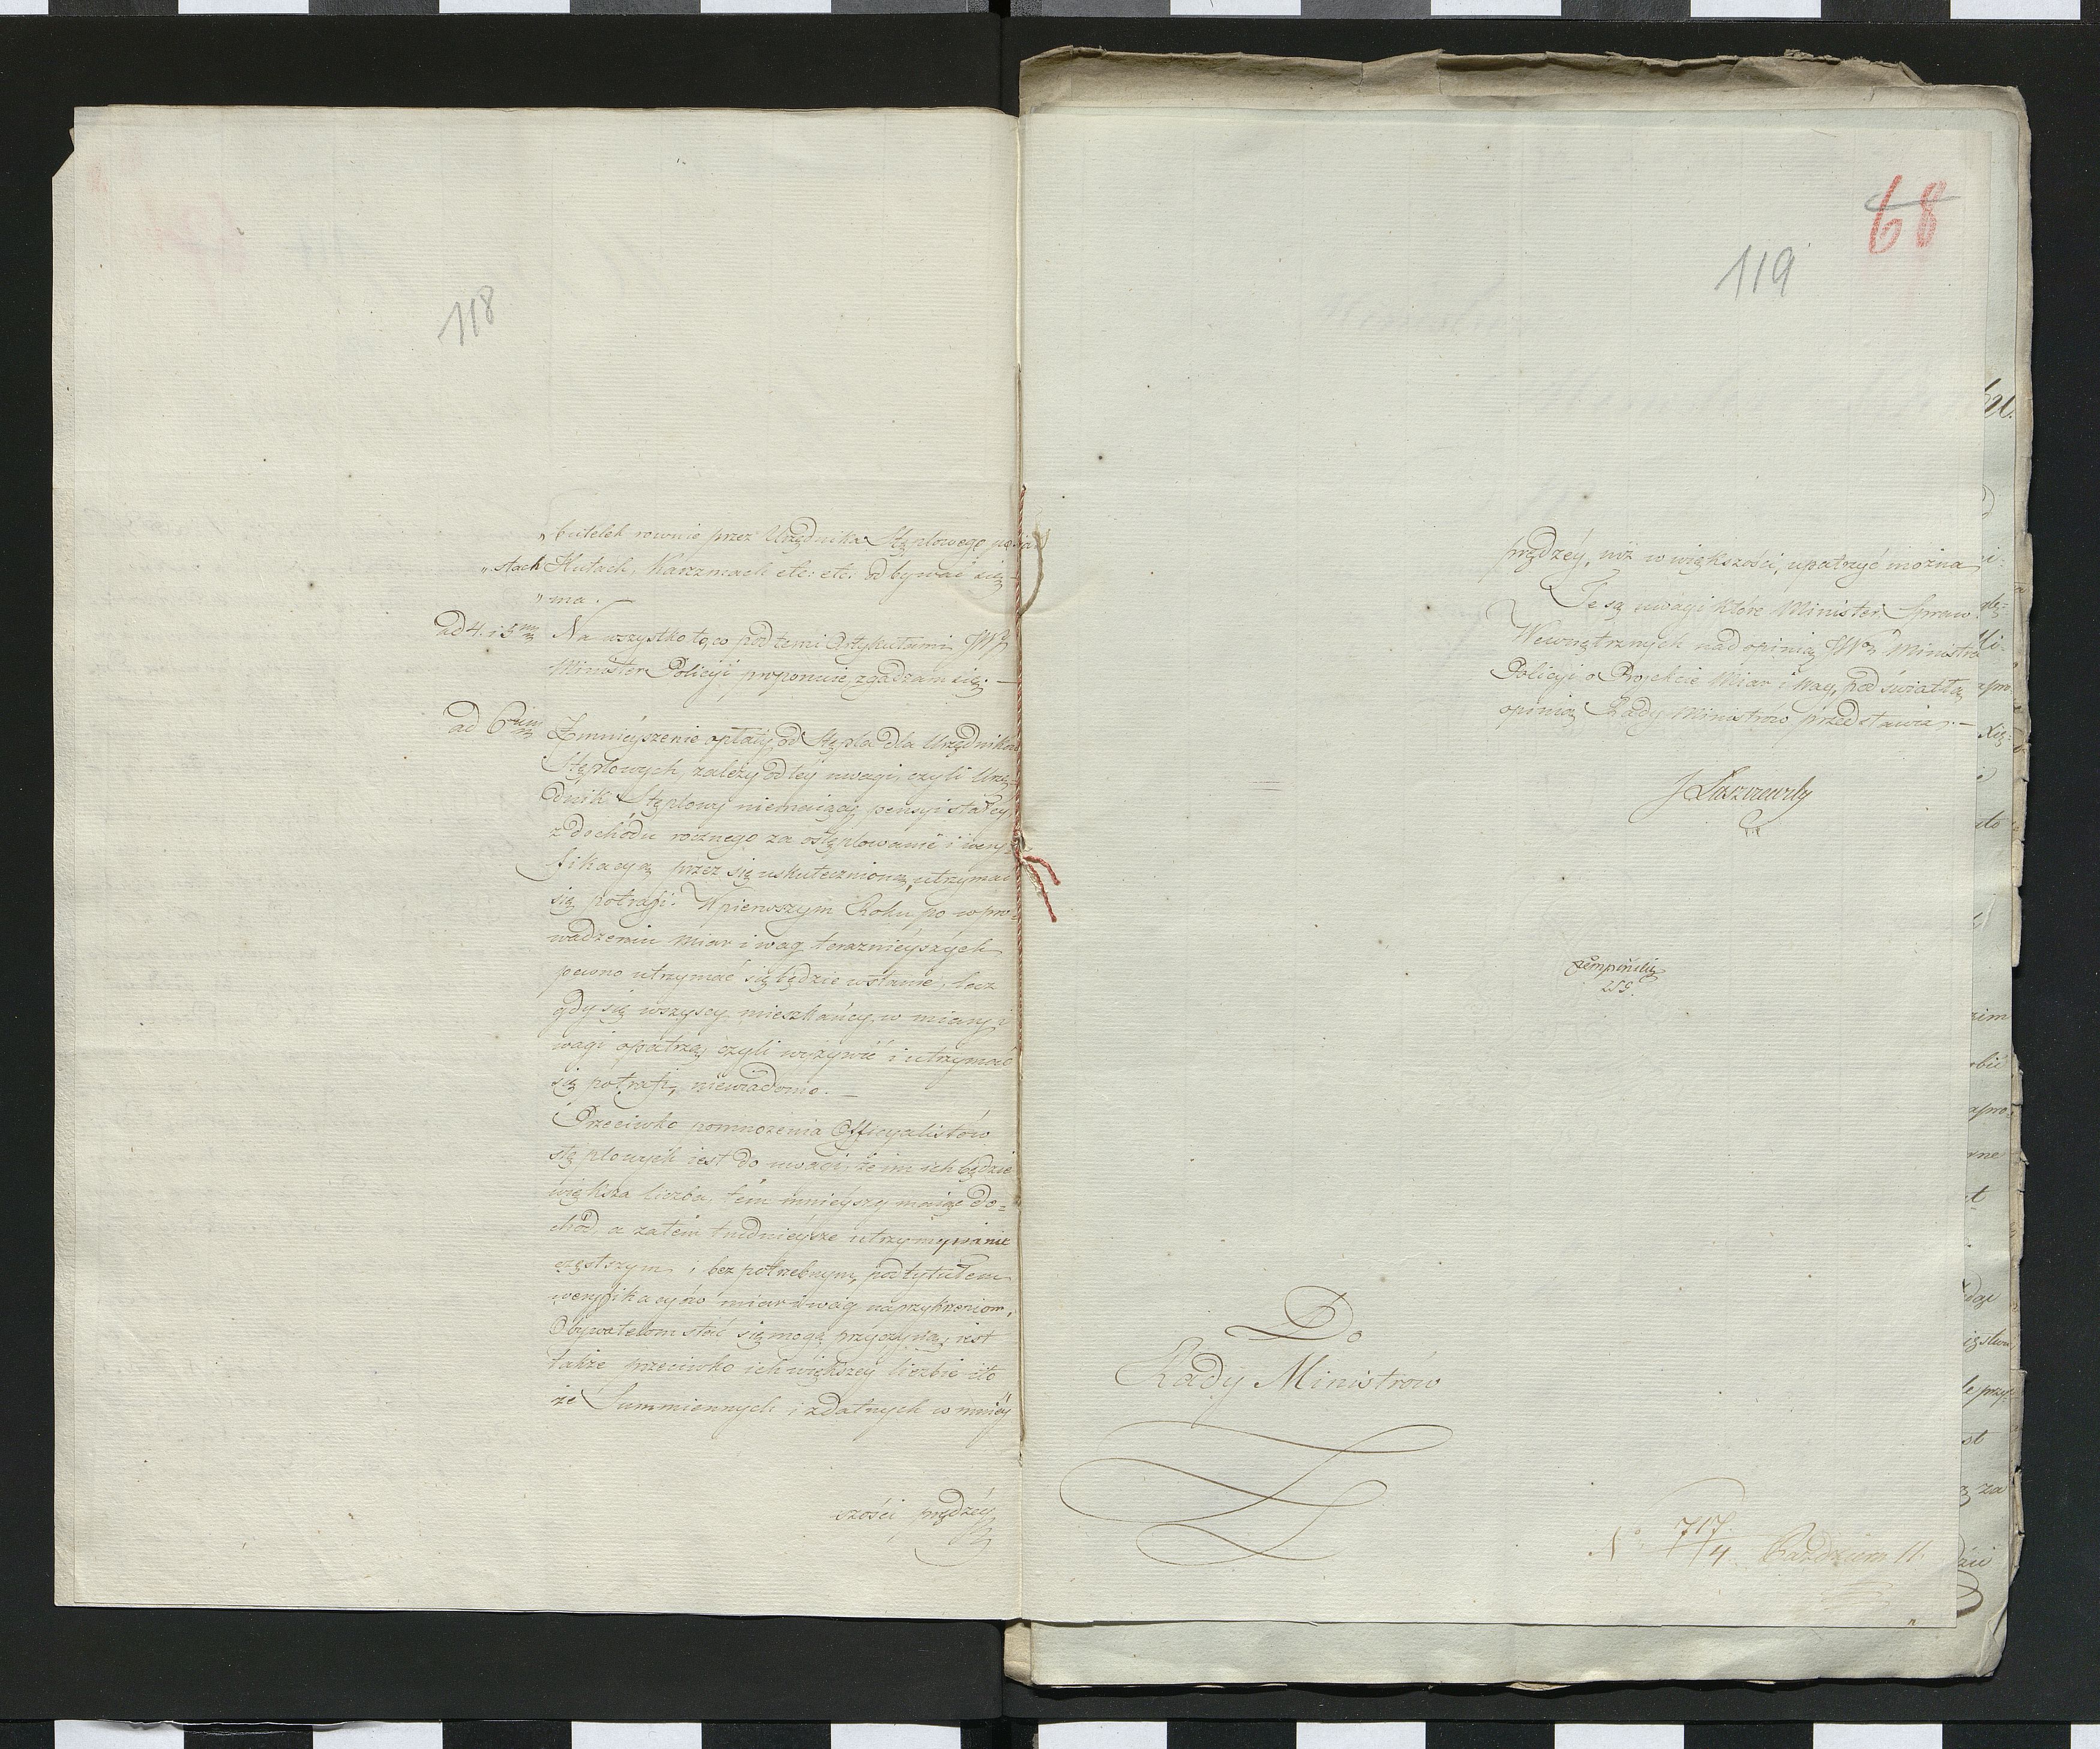 118
„butelek rownie przez Urzędnika Stęplowego po Mia
„stach Hutach, Karczmach etc: etc: odbywać się
„ma.
ad 4. i 5m Na wszystko to, co pod temi Artykułami JW
Minister Policyi proponuie, zgadzam się. —
ad 6m Zmnieyszenie opłaty od Stępla dla Urzędników
Stęplowych, zależy od tey uwagi, czyli Urzę-
dnik Stęplowy niemaiący pensyi stałey
z dochodu rocznego za ostęplowanie i wery-
fikacyą przez się uskutecznioną, utrzymać
się potrafi. W pierwszym Roku, po wpro-
wadzeniu miar i wag teraznieyszych
pewno utrzymać się będzie wstanie, lecz
gdy się wszyscy mieszkańcy w miary i
wagi opatrzą, czyli wyżywić i utrzymać
się potrafi, niewiadomo. —
Przeciwko pomnożenia Officyalistów
stęplowych iest do uwagi, że im ich będzie
większa liczba, tém mnieyszy maiąc do=
chód, a zatém trudnieysze utrzymywanie
częstszym i bez potrzebnym, pod tytułem
weryfikacyów miar i wag naprzykrzeniom,
Obywatelom stać się mogą przyczyną, iest
także przeciwko ich większey liczbie i to
że Summiennych i zdatnych w mniey
szości, prędzéy
68
119
prędzéy, niż w większości, upatrzyć można
Te są uwagi które Minister Spraw
Wewnętrznych nad opinią JWo Ministra
Policyi o Projekcie Miar i Wag, pod światłą
opinią Rady Ministrów przedstawia. —
J Łuszczewsky
Rempiński
Do
Rady Ministrów
No 717/4 Październ 11.